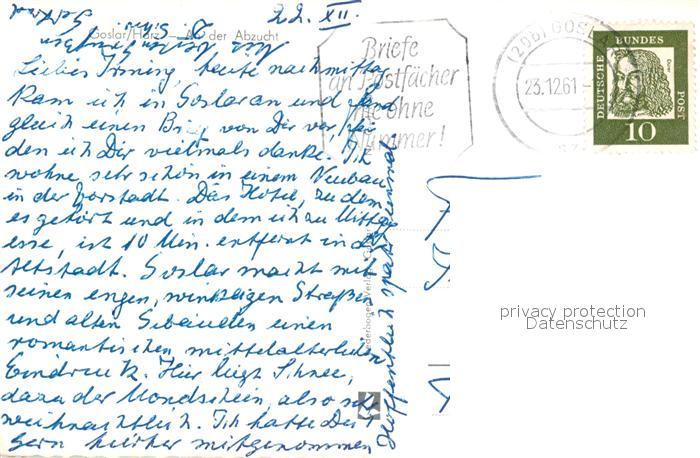 22. XII.
Goslar/Harz – An der Abzucht
Liebes Irming, heute nachmittag
kam ich in Goslar an und fand
gleich einen Brief von Dir vor, für
den ich Dir vielmals danke. Ich
wohne sehr schön in einem Neubau
in der Vorstadt. Das Hotel, zu dem
es gehört und in dem ich zu Mittag
esse, ist 10 Min. entfernt in der
Altstadt. Goslar macht mit
seinen engen, winkeligen Straßen
und alten Gebäuden einen
romantischen mittelalterlichen
Eindruck. Hier liegt Schnee,
dazu der Mondschein, also sehr
weihnachtlich. Ich hätte Dich
gern hierher mitgenommen
Hoffentlich später einmal
Mit herzl. Grüßen
Briefe
an Postfächer
nie ohne
Nummer!
(20b) GOSLAR
23.12.61
DEUTSCHE BUNDES POST
Dürer
10
privacy protection
Datenschutz